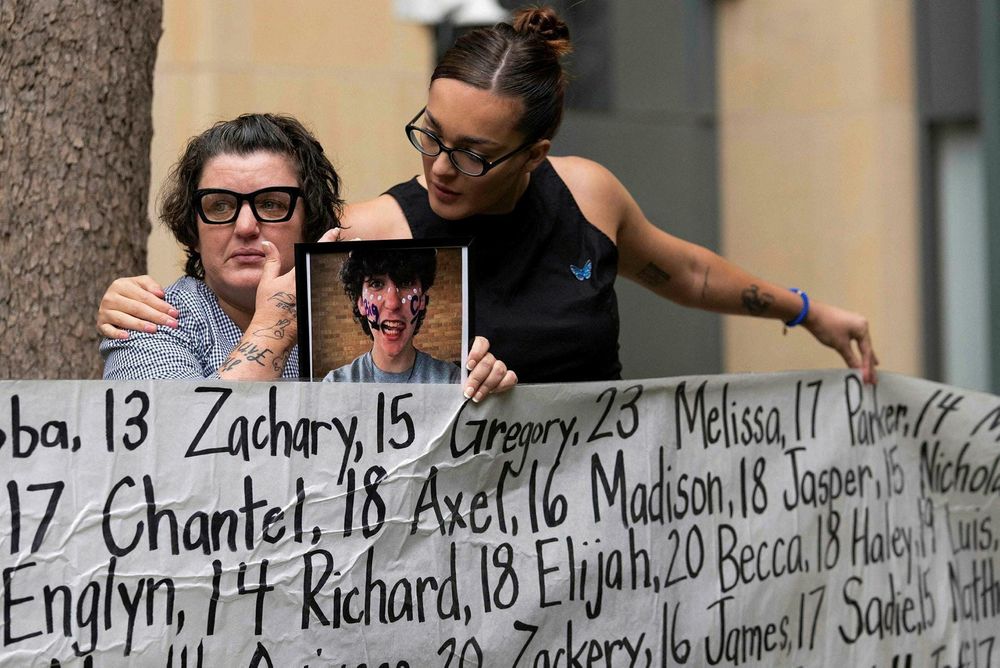 ba, 13 Zachary, 15 Gregory, 23 Melissa, 17 Parker, 14
17 Chantel, 18 Axel, 16 Madison, 18 Jasper, 15 Nichol
Englyn, 14 Richard, 18 Elijah, 20 Becca, 18 Haley, 19 Luis,
20 Zackery, 16 James, 17 Sadie, 15 Nath